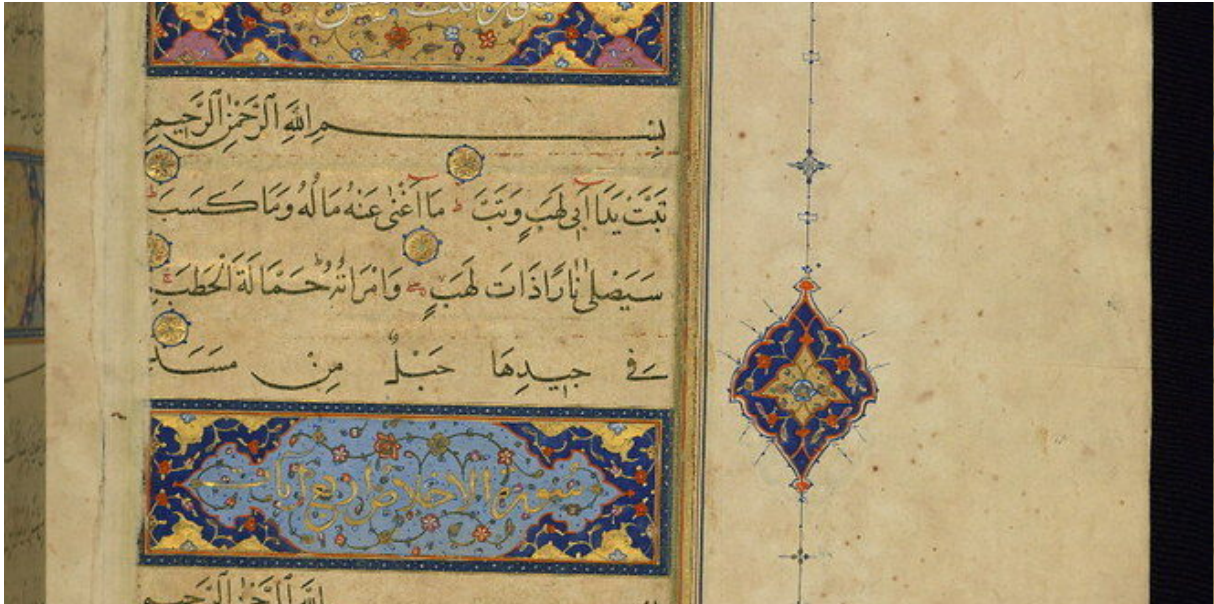 بِسْمِ اللهِ الرَّحْمٰنِ الرَّحِيمِ
تَبَّتْ يَدَا اَبِي لَهَبٍ وَتَبَّ مَا اَغْنٰى عَنْهُ مَالُهُ وَمَا كَسَبَ
سَيَصْلٰى نَارًا ذَاتَ لَهَبٍ وَامْرَاَتُهُ حَمَّالَةَ الْحَطَبِ
فِي جِيدِهَا حَبْلٌ مِنْ مَسَدٍ
سورة الاخلاص اربع آيات